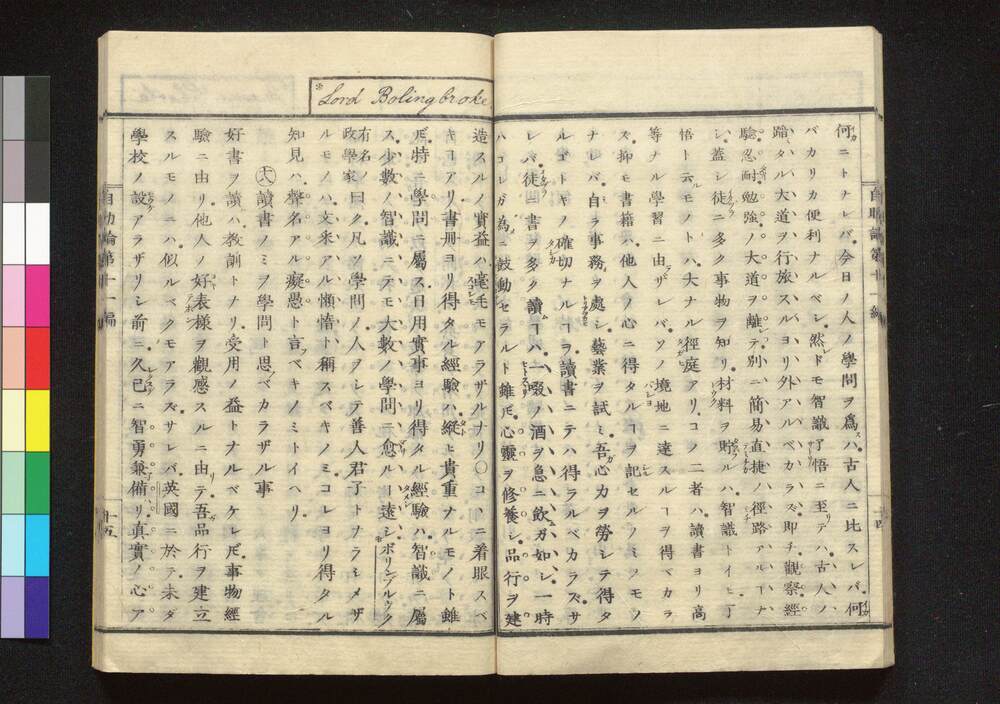 何ニトナレバ。今日ノ人ノ學問ヲ爲スハ。古人ニ比スレバ。何
バカリカ便利ナルベシ。然レドモ智識了悟ニ至リテハ。古人ノ
蹈タル大道ヲ行旅スルヨリ外アルベカラズ。即チ觀察經
驗忍耐勉強ノ大道ヲ離レテ別ニ簡易直捷ノ徑路アルヿナ
シ。蓋シ徒ニ多ク事物ヲ知リ。材料ヲ貯ルハ。智識トイヒ了
悟ト云モノトハ。大ナル徑庭アリ。コノ二者ハ。讀書ヨリ高
等ナル學習ニ由ザレバ。ソノ境地ニ達スルヿヲ得ベカラ
ズ。抑モ書籍ハ。他人ノ心ニ得タルヿヲ記セルノミ。ソモノ
ナレバ。自ラ事務ヲ處シ。藝業ヲ試ミ。吾心力ヲ勞シテ得タ
ルゴトキノ確切ナルヿヲ讀書ニテハ得ラルベカラズ。サ
レバ。徒ニ書ヲ多ク讀ムヿハ。一啜ノ酒ヲ急ニ飲ガ如シ。一時
ハコレガ爲ニ鼓動セラルト雖ドモ。心靈ヲ修養シ。品行ヲ建
自助論第十一編
十四
*Lord Bolingbroke.
造スルノ實益ハ。毫毛モアラザルナリ○コヽニ着眼スベ
キヿアリ。書册ヨリ得タル經驗ハ。縱ヒ貴重ナルモノト雖
ドモ。特ニ學問ニ屬ス。日用實事ヨリ得タル經驗ハ。智識ニ屬
ス。少數ノ智識ニテモ。大數ノ學問ニ愈ルヿ遠シ。*ボリンブルック
有名ノ政學家曰ク。凡ソ學問ノ人ヲシテ善人君子トナラシメザ
ルモノハ。文釆アル懶惰ト稱スベキノミ。コレヨリ得タル
知見ハ。聲名アル癡愚ト言フベキノミトイヘリ。
讀書ノミヲ學問ト思ベカラザル事
好書ヲ讀ハ。教訓トナリ。受用ノ益トナルベケレドモ。事物經
驗ニ由リ。他人ノ好表樣ヲ觀感スルニ由リテ。吾品行ヲ建立
スルモノニハ。似ルベクモアラズ。サレバ。英國ニ於テ。未ダ
學校ノ設アラザリシ前ニ。久已ニ智勇兼備リ。真實ノ心ア
自助論第十一編
十五